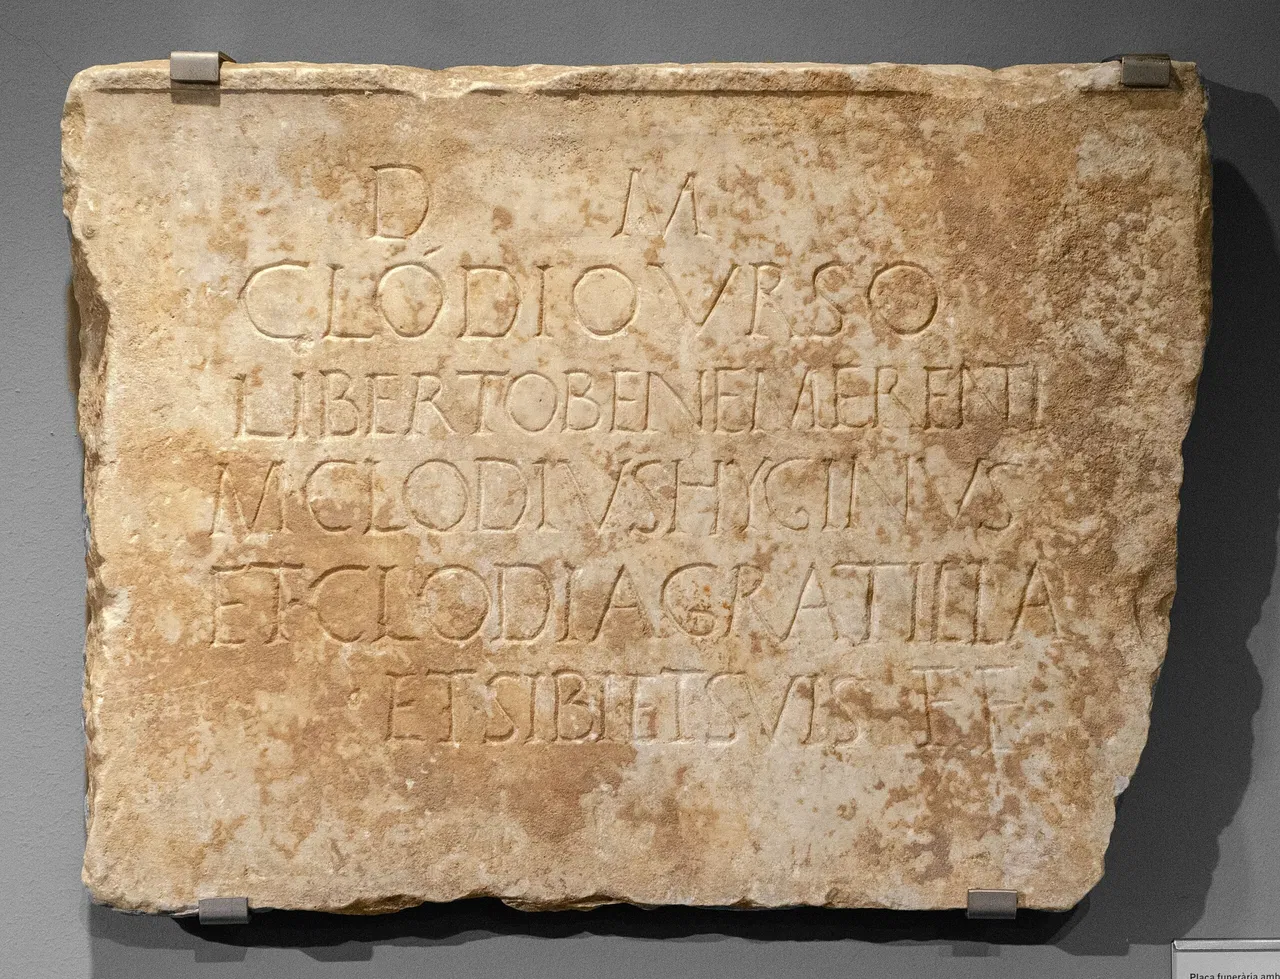 D M
CLÓDIO VRSO
LIBERTO BENEMERENTI
M CLODIVS HYGINVS
ET CLODIA GRATILLA
ET SIBI ET SVIS F F
Placa funerària amb